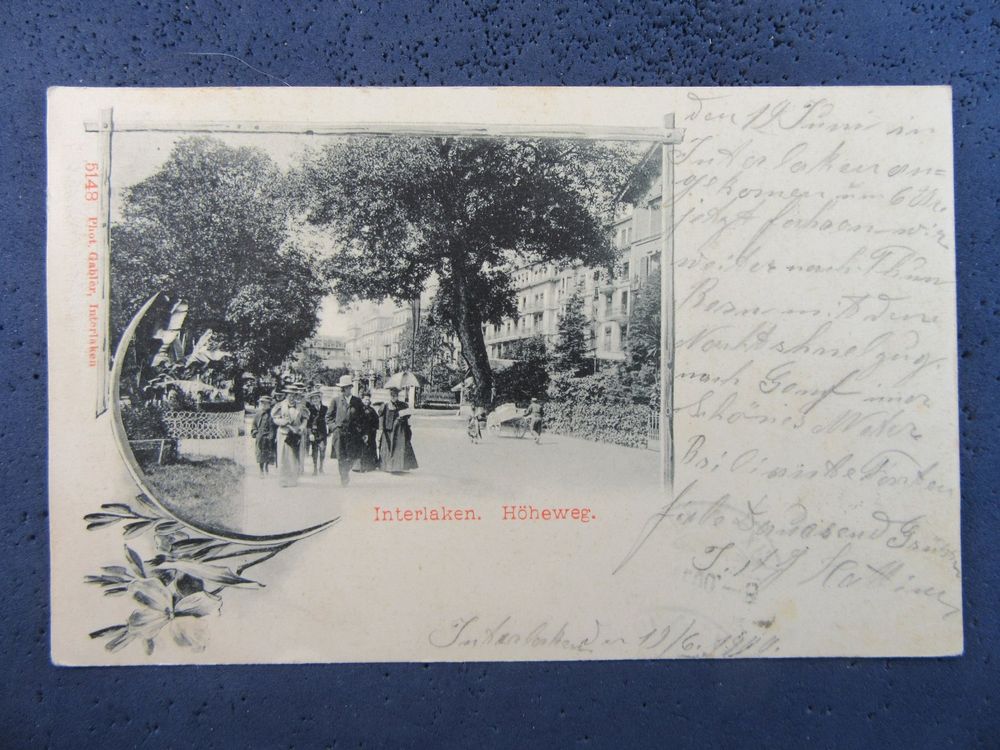 5143 Phot. Gabler, Interlaken
Interlaken. Höheweg.
den 19 Juni in
Interlaken an=
gekomen um 6 Uhr
jetzt fahren wir
weiter nach Thun
Bern mit dem
Nachtschnelzug
nach Genf imer
schönes Weter
Brilinte
Tausend Grüsse
J.
Interlaken den 19/6. 1900.